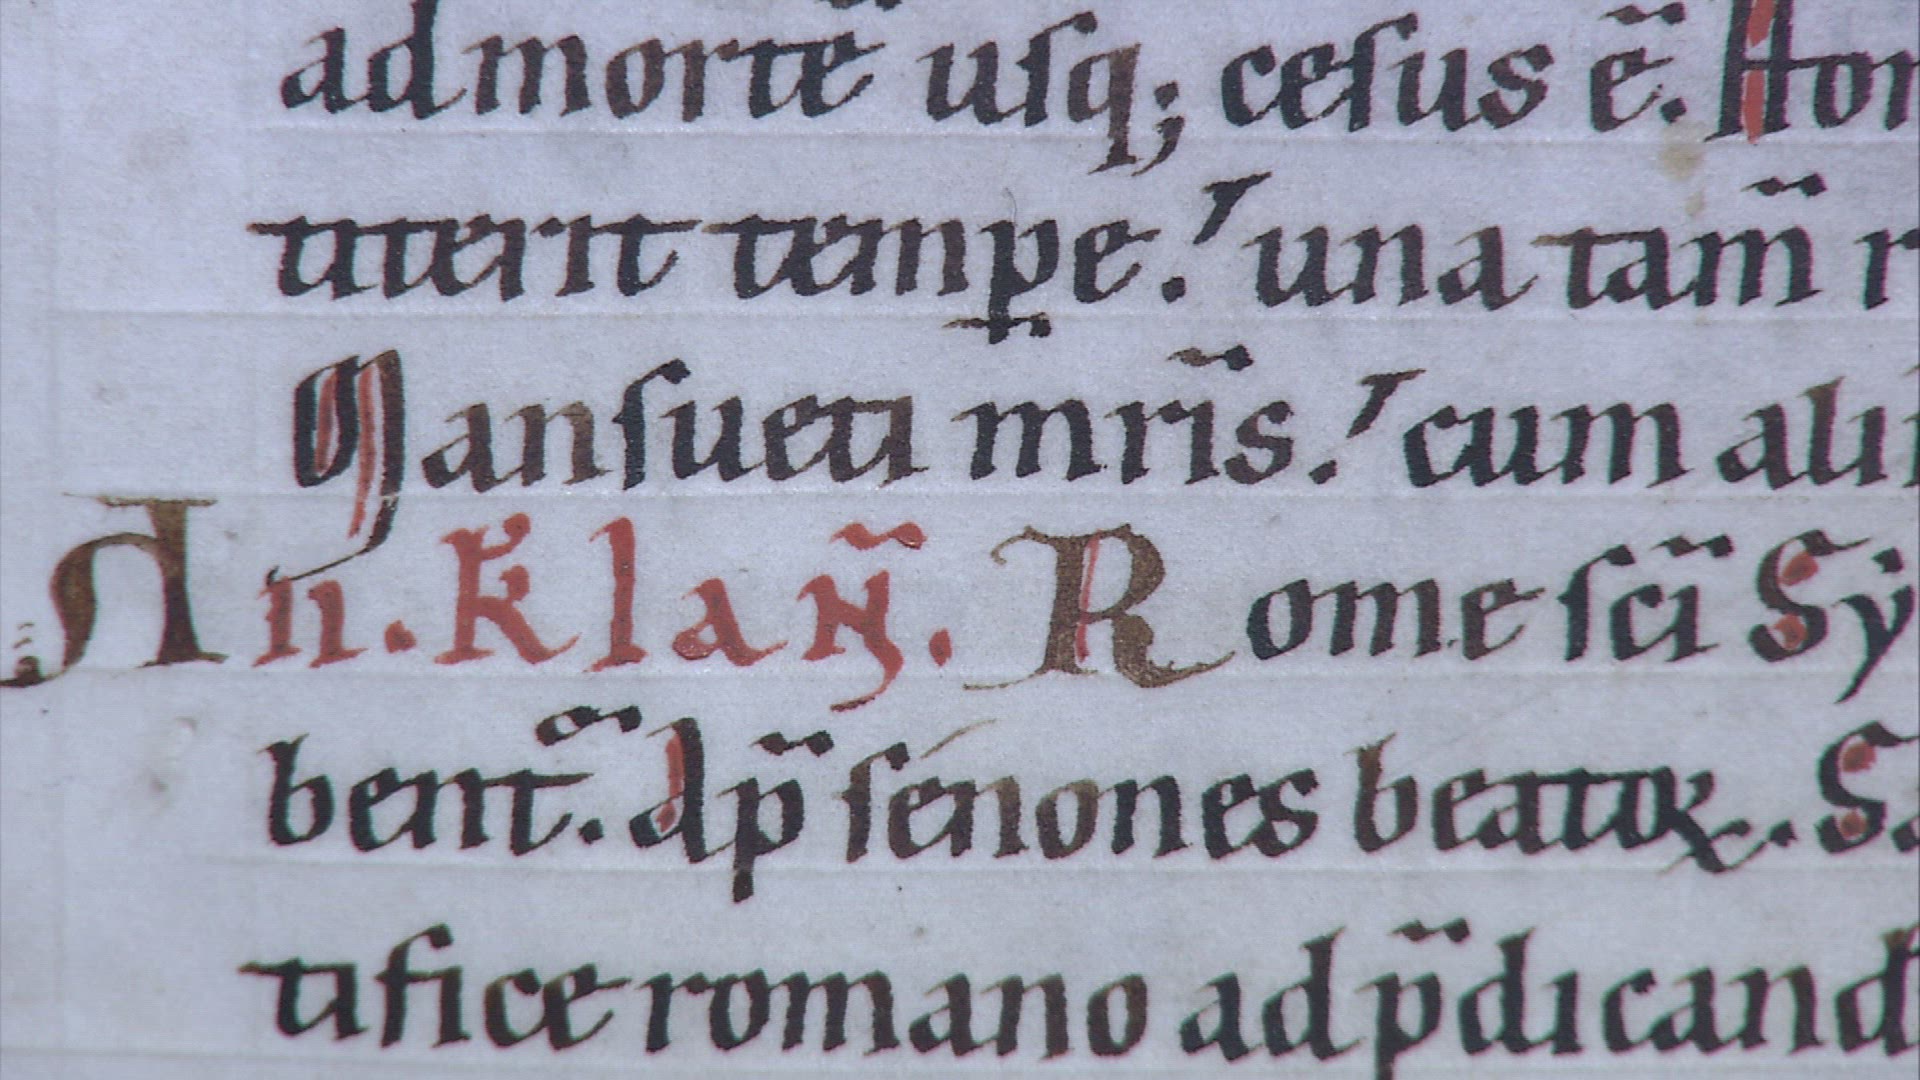 ad mortē uſq; ceſus ē. Hon
titerit temp̱e. una tam̄ r
Manſueti mr̄is. cum alii
An. kl̄ ian̄. Rome ſc̄i Sy
bent᷒. Ap̄ ſenones beatoꝝ. Sa
tifice romano ad p̄dicand